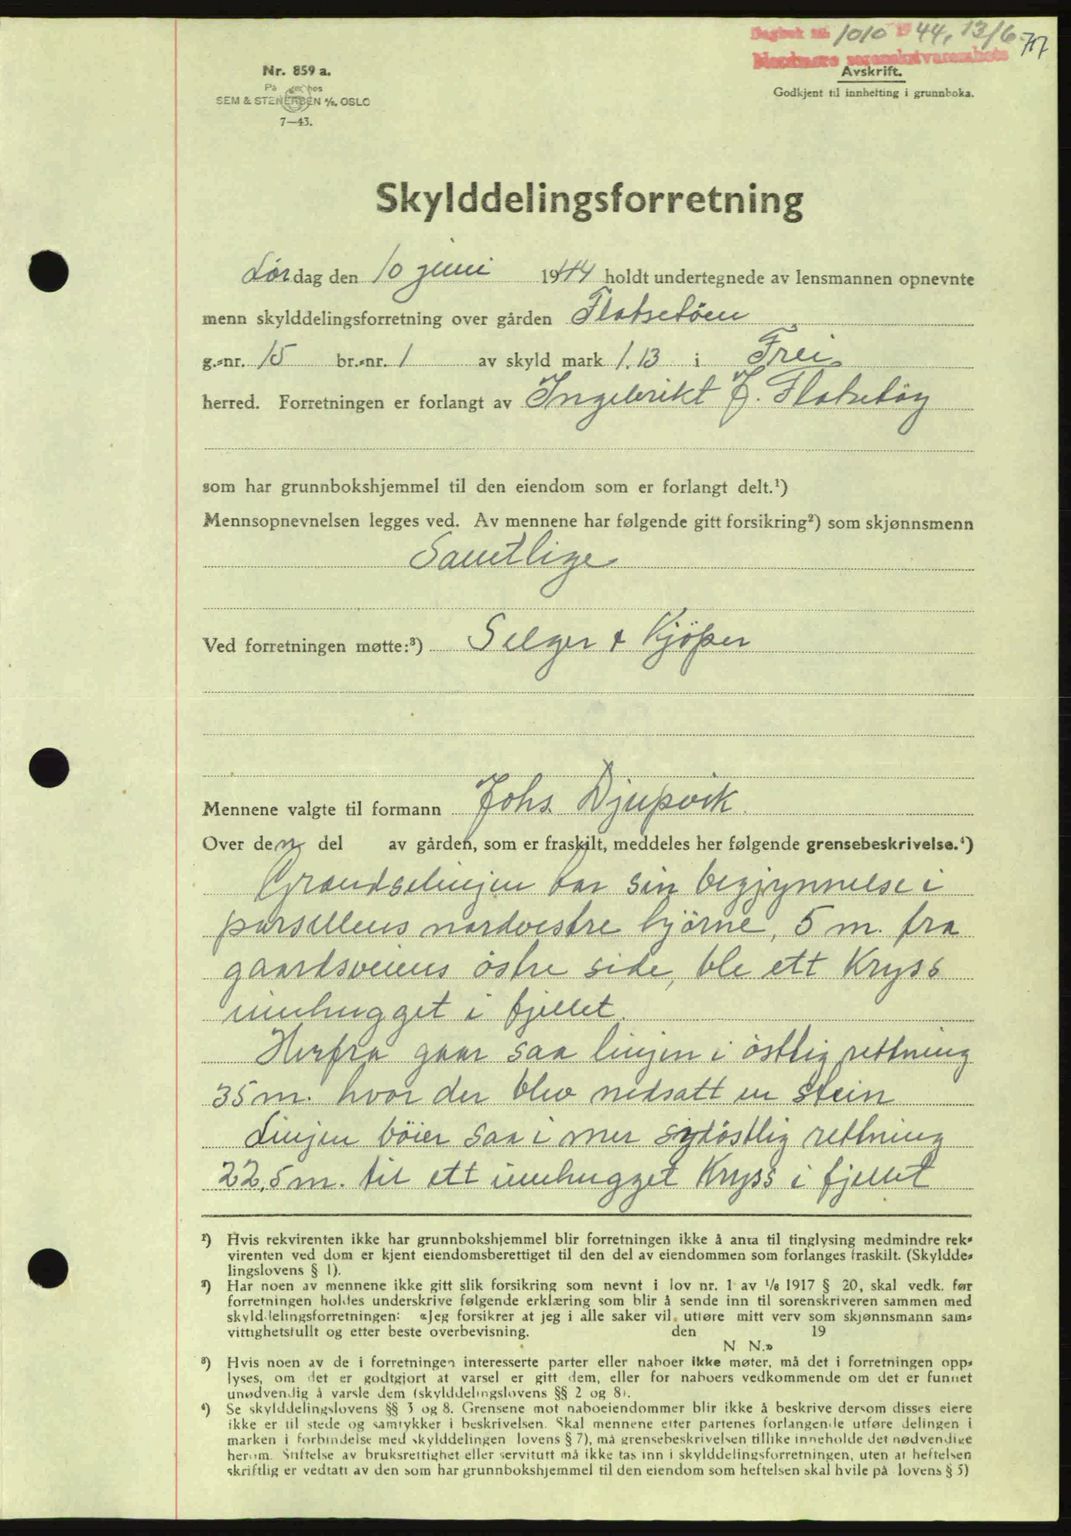 Dagbok nr. 1010 1944, 13/6.
717
Nordmøre sorenskriverembete
Nr. 859 a.
SEM & STENERSEN A/S, OSLO
7—43.
Avskrift.
Godkjent til innhefting i grunnboka.
Skylddelingsforretning
Lørdag den 10 juni 1944 holdt undertegnede av lensmannen opnevnte
menn skylddelingsforretning over gården Flatsetöen
g.-nr. 15 br.-nr. 1 av skyld mark 1.13 i Frei
herred. Forretningen er forlangt av Ingebrikt J. Flatsetöy
som har grunnbokshjemmel til den eiendom som er forlangt delt.¹)
Mennsopnevnelsen legges ved. Av mennene har følgende gitt forsikring²) som skjønnsmenn
Samtlige
Ved forretningen møtte:³) Selger & Kjöper
Mennene valgte til formann Johs. Djupvik
Over den del av gården, som er fraskilt, meddeles her følgende grensebeskrivelse.⁴)
Grændselinjen har sin begjynnelse i
parsellens nordvestre hjörne, 5 m. fra
gaardsveiens östre side, ble ett Kryss
innhugget i fjellet.
Herfra gaar saa linjen i östlig rettning
35 m. hvor der blev nedsatt en stein
Linjen böier saa i mer sydöstlig rettning
22,5 m. til ett innhugget Kryss i fjellet
¹) Hvis rekvirenten ikke har grunnbokshjemmel blir forretningen ikke å anta til tinglysing medmindre rek-
virenten ved dom er kjent eiendomsberettiget til den del av eiendommen som forlanges fraskilt. (Skyldde-
lingslovens § 1).
²) Har noen av mennene ikke gitt slik forsikring som nevnt i lov nr. 1 av 1/6 1917 § 20, skal vedk. før
forretningen holdes underskrive følgende erklæring som blir å sende inn til sorenskriveren sammen med
skylddelingsforretningen: «Jeg forsikrer at jeg i alle saker vil utføre mitt verv som skjønnsmann sam-
vittighetsfullt og etter beste overbevisning. den 19
N N.»
³) Hvis noen av de i forretningen interesserte parter eller naboer ikke møter, må det i forretningen opp-
lyses, om det er godtgjort at varsel er gitt dem, eller for naboers vedkommende om det er funnet
unødvendig å varsle dem (skylddelingslovens §§ 2 og 8).
⁴) Se skylddelingslovens §§ 3 og 8. Grensene mot naboeiendommer blir ikke å beskrive dersom disses eiere
ikke er til stede og samtykker i beskrivelsen. Skal mennene etter partenes forlangende utføre delingen i
marken i forbindelse med skylddelingen lovens § 7), må grensebeskrivelsen tillike inneholde det nødvendige
herom. Stiftelse av bruksrettighet eller servitutt må ikke tas inn i skylddelingsforretningen, uten at heftelsen
skriftlig er vedtatt av den som har grunnbokshjemmel til den eiendom som heftelsen skal hvile på lovens § 5)